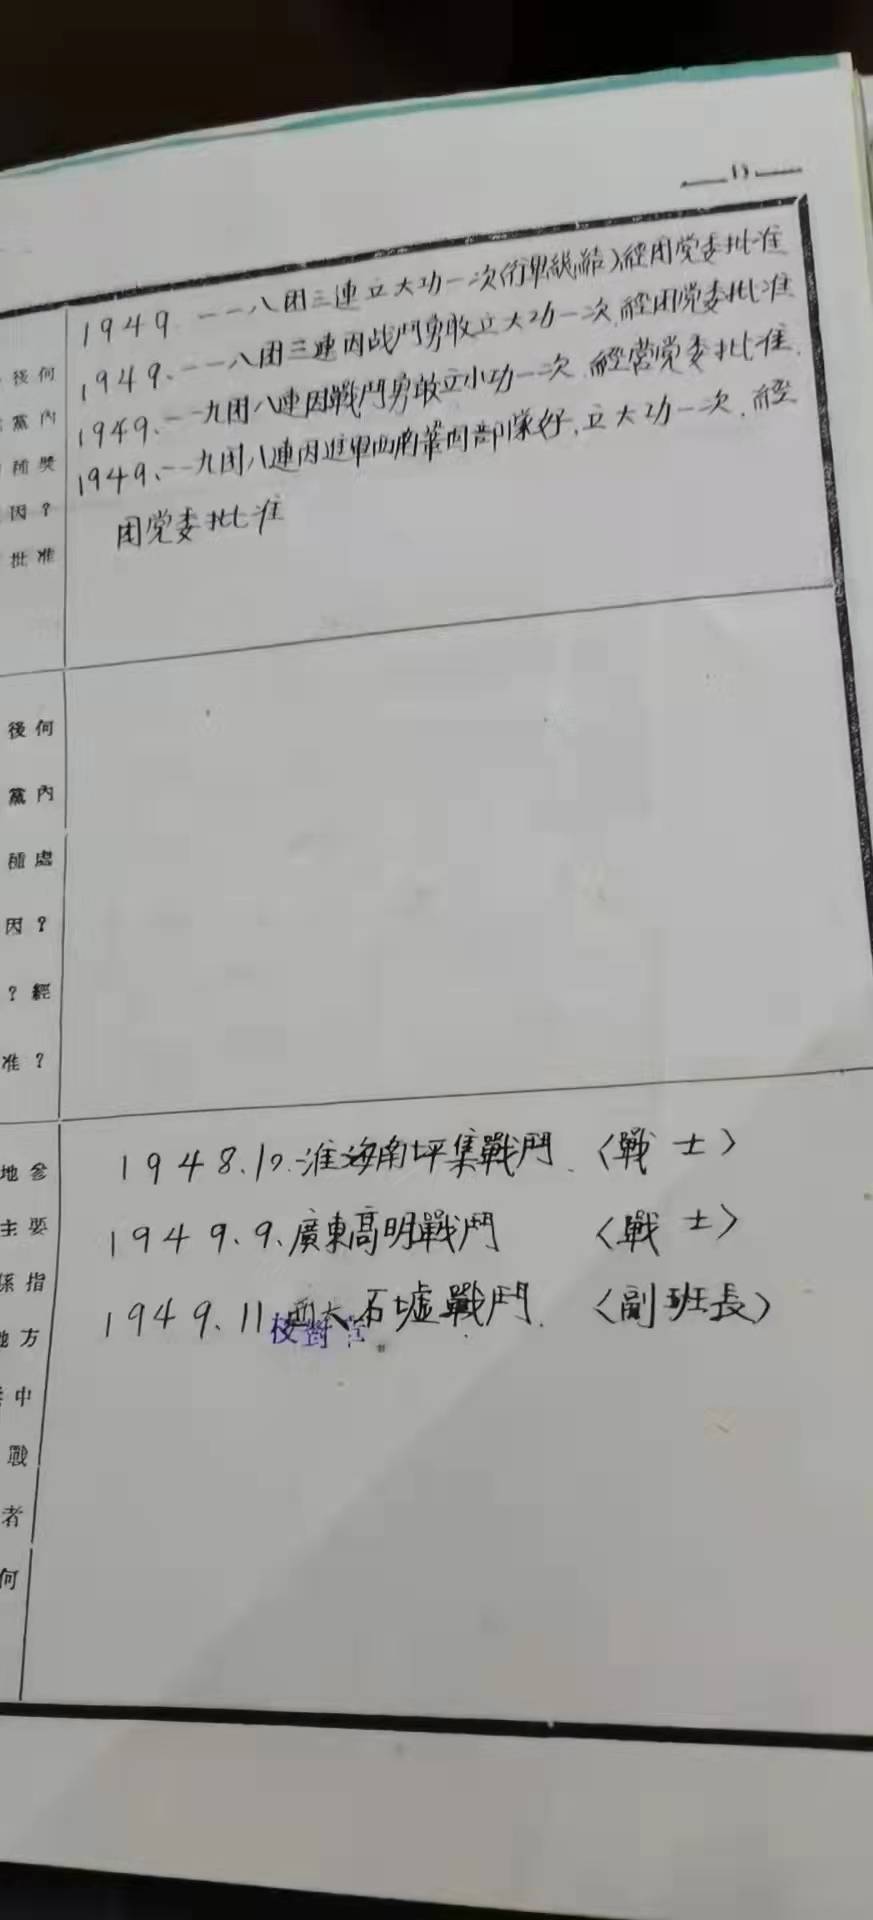 1949.一一八团三連立大功一次(行軍総結)経团党委批准
1949、一一八团三連因战鬥勇敢立大功一次,経团党委批准
1949、一一九团八連因戰鬥勇敢立小功一次.経营党委批准.
1949、一一九团八連因進軍西南鞏固部隊好,立大功一次.経
团党委批准
後何
黨內
種獎
因?
批准
後何
黨內
種處
因?
?經
准?
1948.12.淮海南坪集戰鬥.〈戰士〉
1949、9、廣東高明戰鬥 〈戰士〉
1949、11 石墟戰鬥.〈副班長〉
校對
地參
主要
係指
地方
中
戰
者
何